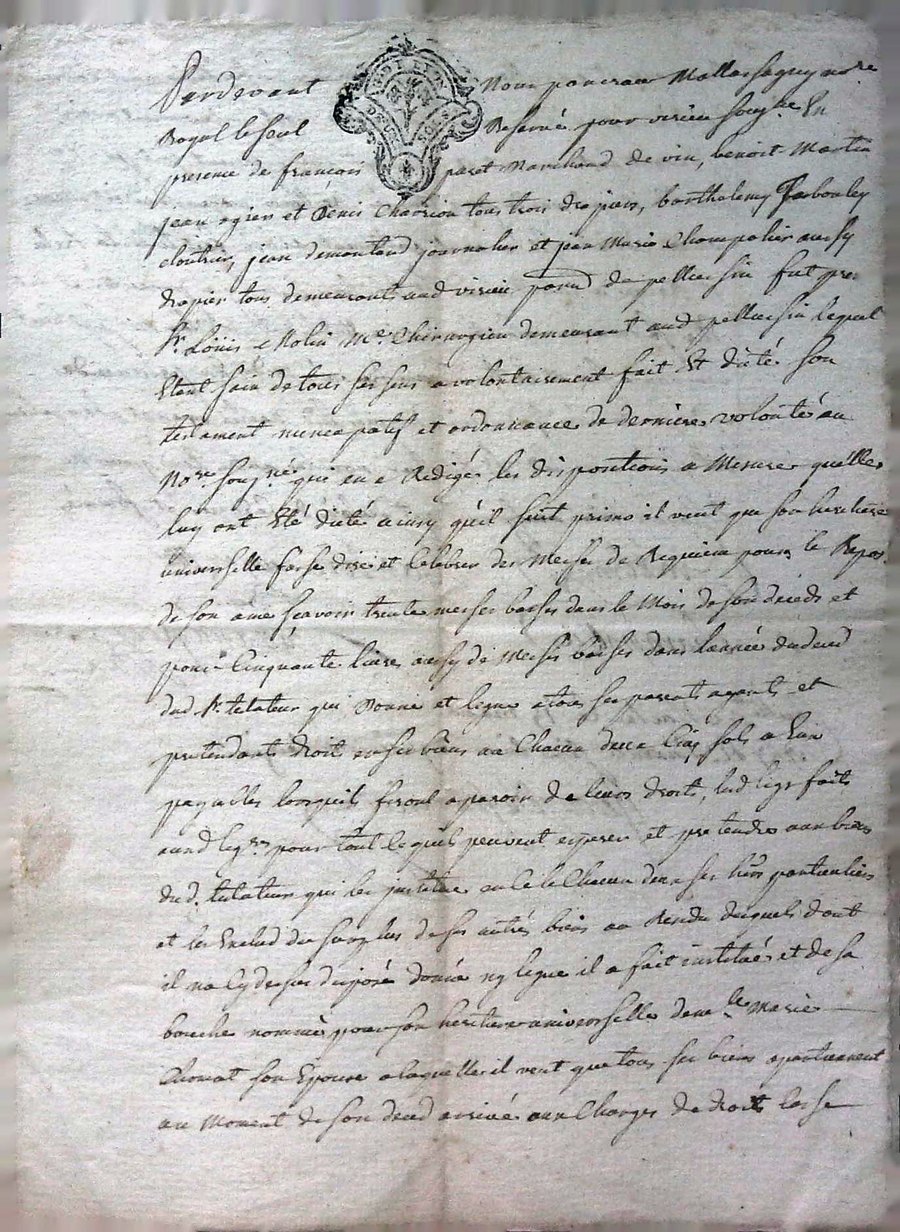 Pardevant Nous pancrace Mallassagny no.re
Royal le seul Reservé pour virieu soug.ne En
presence de françois paret Marchand de vin, benoit Martin
jean ogier et Denis Chavrion tous trois drapiers, barthelemy
cloutier, jean demontand journalier et jean Marie Champalier aussy
drapier tous demeurants aud virieu paroi de pellussin fut pnt
Sr. Loüis Molin Me. Chirurgien demeurant aud pellussin lequel
Etant sain de tous ses sens a volontairement fait Et dicté son
testament nuncupatif et ordonnance de dernieres volontés au
No.re soug.né qui en a Redigé les dispositions a Mesure qu'elles
luy ont Eté dicté ainsy qu'il suit primo il veut que son heritiere
universelle fasse dire et Celebrer des Messes de Requiem pour le Repos
de son ame sçavoir trente messes basses dans le Mois de son décéds et
pour Cinquante livres aussy de Messes basses dans lannée du deced
dud. Sr. testateur qui Donne et legue a tous ses parents agents et
pretendants droit en ses biens au Chacun deux Cinq sols a Eux
payables lorsquils feront aparoir de leurs droits, lesd legs faits
auxd leg.res pour tout ce quils peuvent esperer et pretendre aux biens
dud. testateur qui les institue en Ce le Chacun deux ses hers particuliers
et les Exclud du surplus de ses autres biens au Residu desquels dont
il na Cy dessus disposé donné ny legué il a fait institué et de sa
bouche nommé pour son heritiere universelle dem.lle Marie
Chovat son Epouse a laquelle il veut que tous ses biens apartiennent
au Moment de son deced arrivé aux Charges de droits lasse